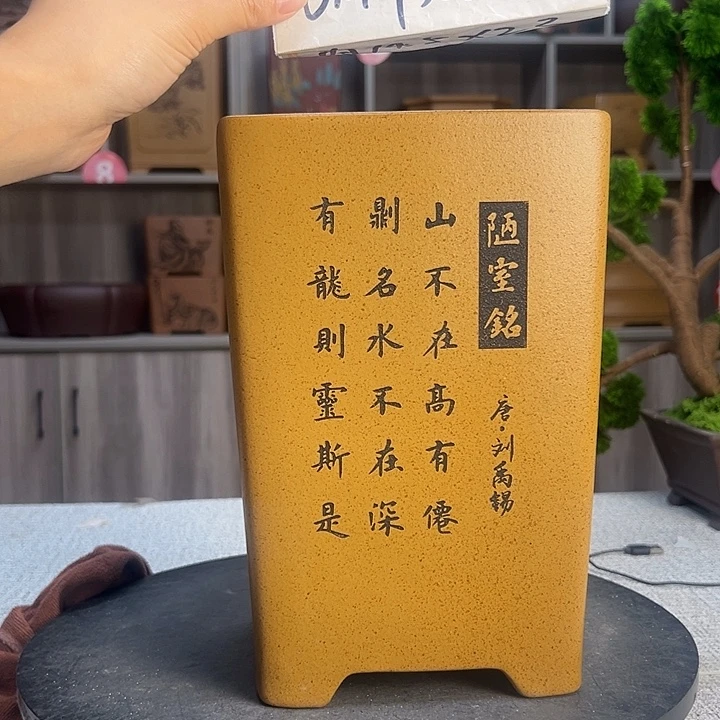 陋室銘
唐·刘禹錫
山不在髙有僊
𠟭名水不在深
有龍則靈斯是